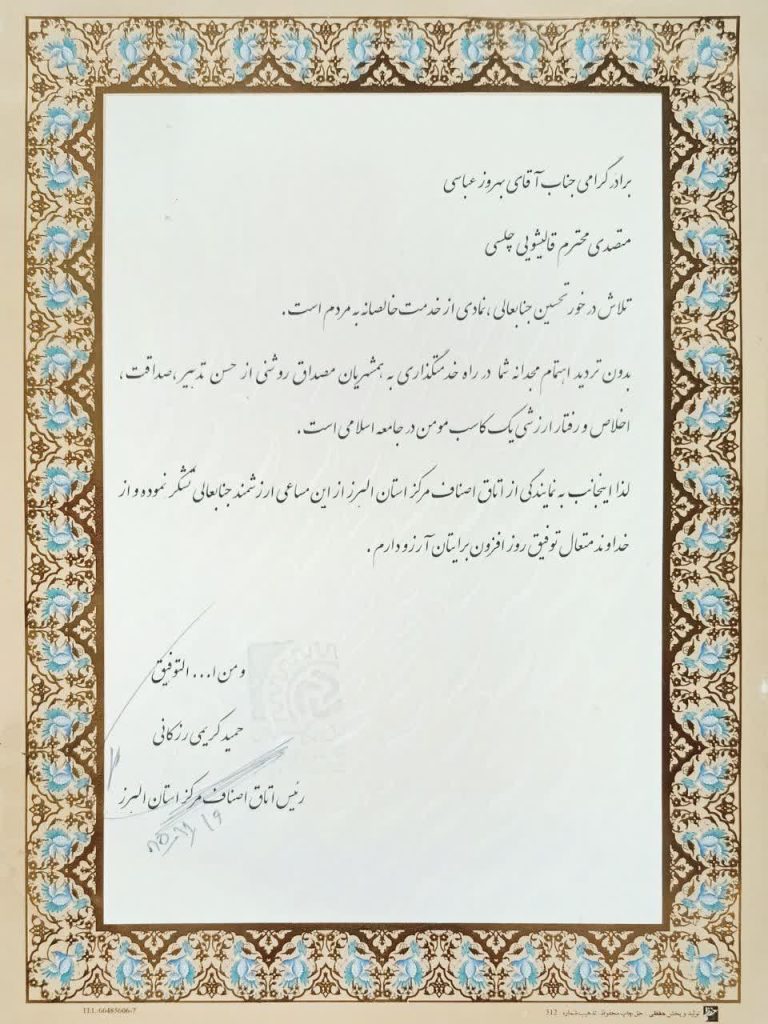 برادر گرامی جناب آقای بهروز عباسی
متصدی محترم قالیشویی چلسی
تلاش در خور تحسین جنابعالی، نمادی از خدمت خالصانه به مردم است.
بدون تردید اهتمام مجدانه شما در راه خدمتگذاری به همشهریان مصداق روشنی از حسن تدبیر، صداقت،
اخلاص و رفتار ارزشی یک کاسب مومن در جامعه اسلامی است.
لذا اینجانب به نمایندگی از اتاق اصناف مرکز استان البرز از این مساعی ارزشمند جنابعالی تشکر نموده و از
خداوند متعال توفیق روز افزون برایتان آرزو دارم.
و من ا... التوفیق
حمید کریمی رزکانی
رئیس اتاق اصناف مرکز استان البرز
تولید و پخش حفظی - حق چاپ محفوظ - تذهیب شماره 512
TEL:66485606-7